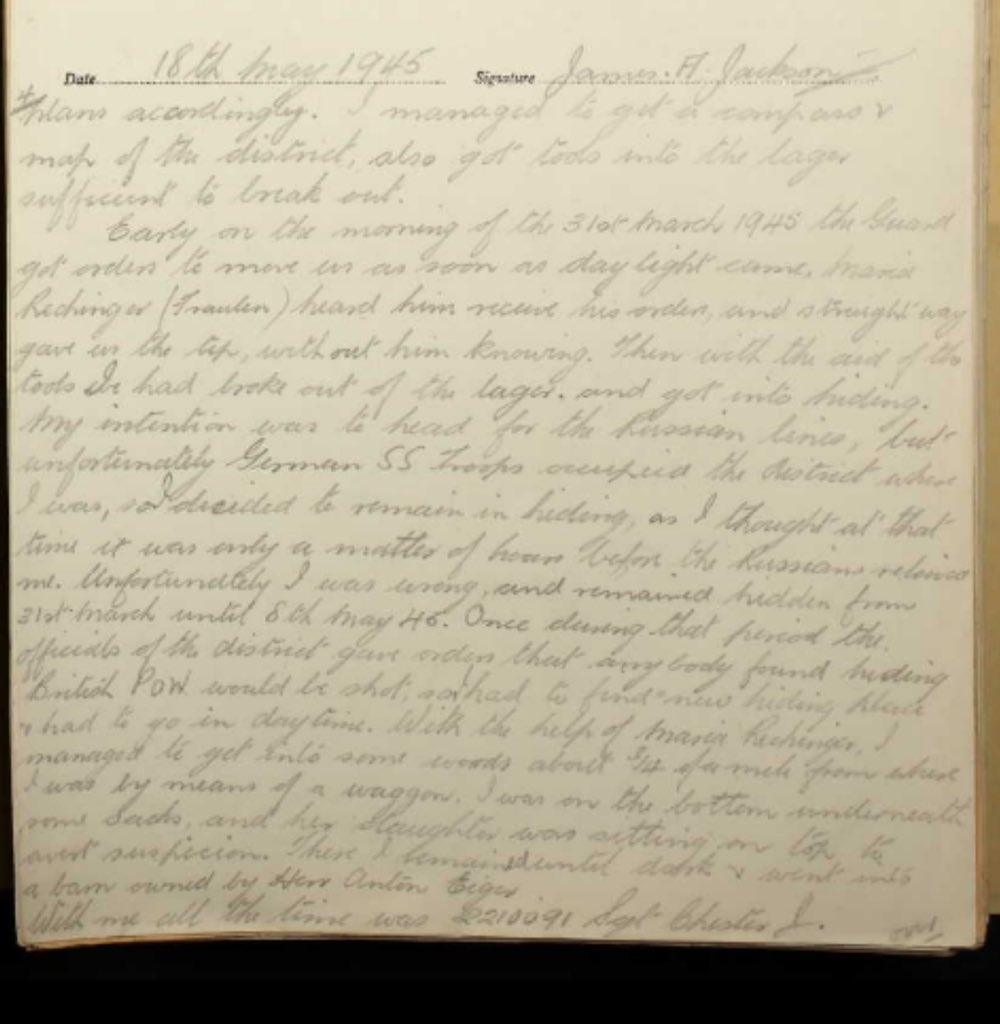 Date 18th May 1945 Signature James. A. Jackson
plans accordingly. I managed to get a compass &
map of the district, also got tools into the lager
sufficient to break out.
Early on the morning of the 31st March 1945 the Guard
got orders to move us as soon as daylight came. Maria
Rechinger (Fraulen) heard him receive his orders, and straight way
gave us the tip, without him knowing. Then with the aid of the
tools We had broke out of the lager. and got into hiding.
My intention was to head for the Russian lines, but
unfortunately German SS Troops occupied the district where
I was, so I decided to remain in hiding, as I thought at that
time it was only a matter of hours before the Russians relieved
me. Unfortunately I was wrong, and remained hidden from
31st March until 8th May 45. Once during that period the
officials of the district gave orders that anybody found hiding
British P.O.W. would be shot, so I had to find new hiding place
& had to go in daytime. With the help of Maria Rechinger, I
managed to get into some woods about 3/4 of a mile from where
I was by means of a waggon. I was on the bottom underneath
some sacks, and her daughter was sitting on top to
avert suspicion. There I remained until dark & went into
a barn owned by Herr Anton Eiger
With me all the time was 2210091 Sgt Chester J.